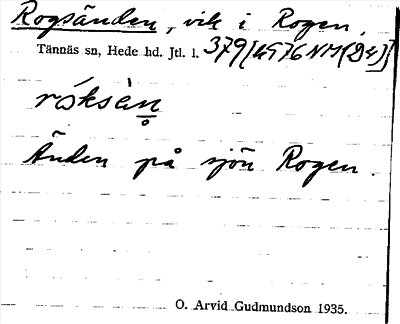 Rogsänden, vik i Rogen,
Tännäs sn, Hede hd. Jtl. l. 379
róksàn̥
Änden på sjön Rogen.
O. Arvid Gudmundson 1935.